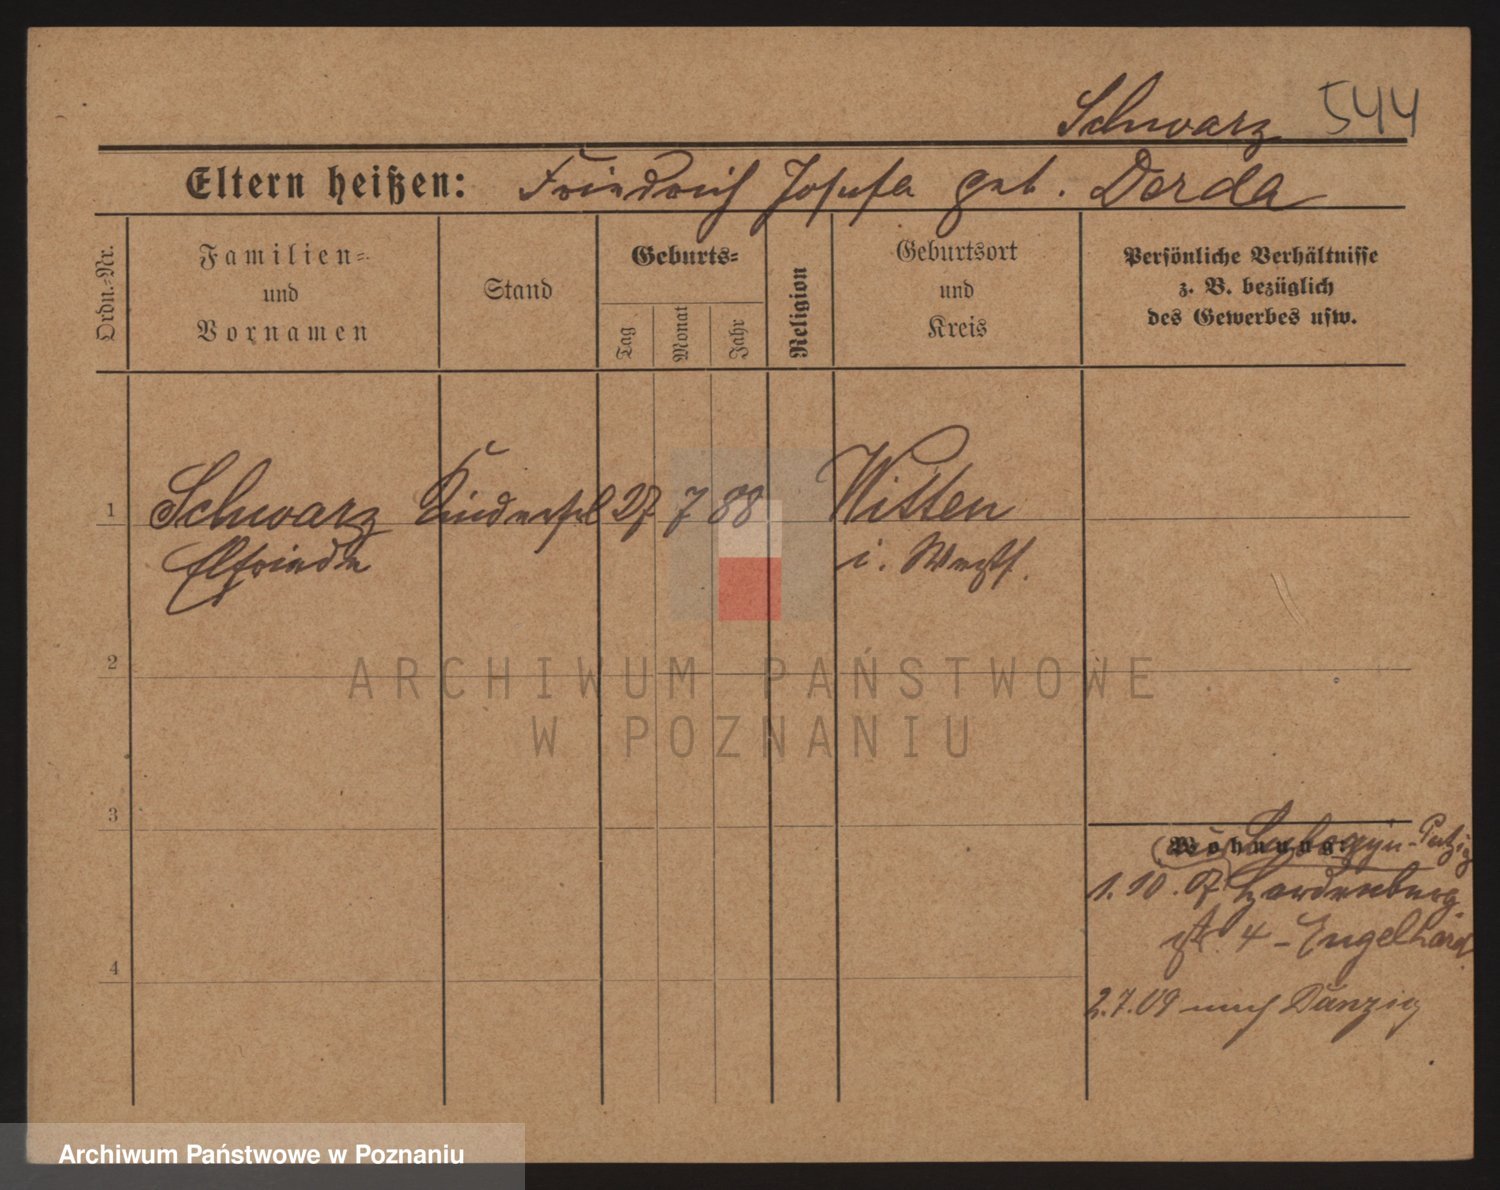 Schwarz 544
Eltern heißen: Friedrich Josefa geb. Derda
Ordn.-Nr.
Familien-
und
Vornamen
Stand
Geburts-
Tag
Monat
Jahr
Religion
Geburtsort
und
Kreis
Persönliche Verhältnisse
z. B. bezüglich
des Gewerbes usw.
1 Schwarz Kinderfrl 27 7 88 Witten
Elfriede i. Westf.
2
ARCHIWUM PAŃSTWOWE
W POZNANIU
3
Wohnung: Putzig
1.10.07 Hardenburg
str. 4 - Engelhard
4
2.7.09 nach Danzig
Archiwum Państwowe w Poznaniu